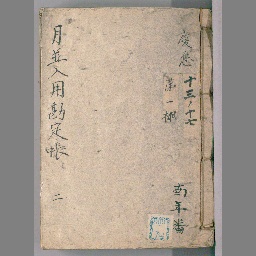 慶應
十三ノ十七
第一棚
酉年番
月並入用勘定帳
二